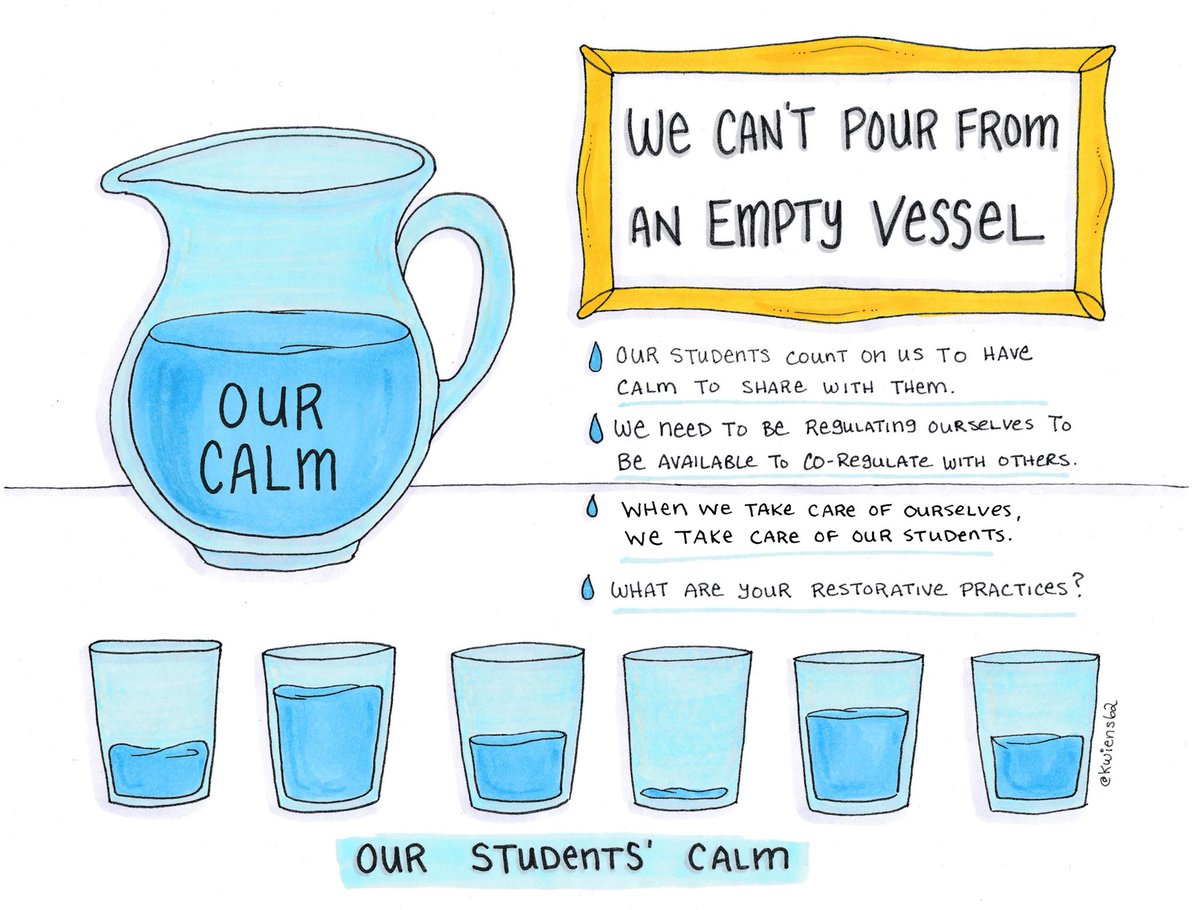 WE CAN'T POUR FROM
AN EMPTY VESSEL
OUR STUDENTS COUNT ON US TO HAVE
CALM TO SHARE WITH THEM.
WE NEED TO BE REGULATING OURSELVES TO
BE AVAILABLE TO CO-REGULATE WITH OTHERS.
WHEN WE TAKE CARE OF OURSELVES,
WE TAKE CARE OF OUR STUDENTS.
WHAT ARE YOUR RESTORATIVE PRACTICES?
OUR
CALM
OUR STUDENTS' CALM
@kwiens62